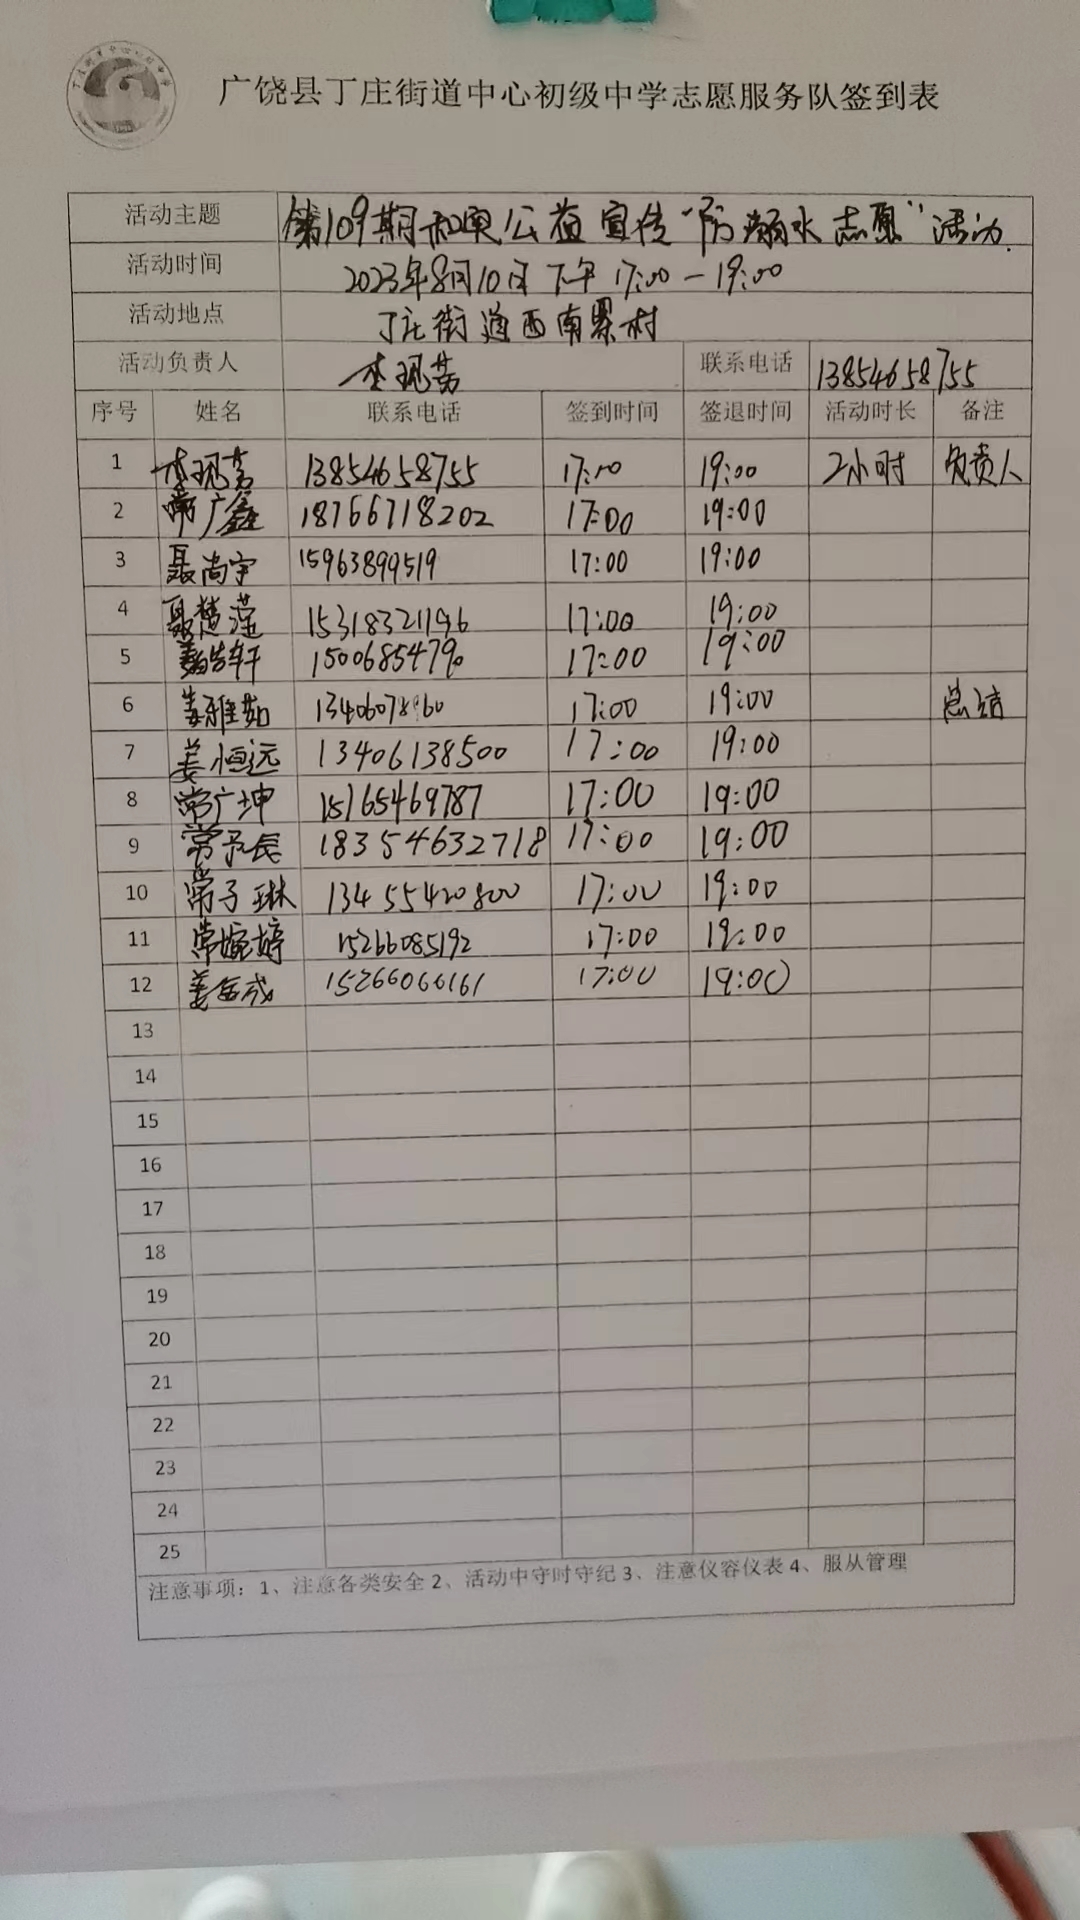 广饶县丁庄街道中心初级中学志愿服务队签到表
活动主题 第109期和奥公益宣传"防溺水志愿"活动.
活动时间 2023年8月10日下午 17:00-19:00
活动地点 丁庄街道西南景村
活动负责人 李现芳 联系电话 13854658755
序号 姓名 联系电话 签到时间 签退时间 活动时长 备注
1 李现芳 13854658755 17:00 19:00 2小时 负责人
2 常广鑫 18766718202 17:00 19:00
3 聂尚宇 15963899519 17:00 19:00
4 聂楚滢 15318321196 17:00 19:00
5 轩 1500685479 17:00 19:00
6 姜雅茹 17:00 19:00 总结
7 姜恒远 13406138500 17:00 19:00
8 常广坤 15165469787 17:00 19:00
9 常予辰 18354632718 17:00 19:00
10 常子琳 13455420800 17:00 19:00
11 常婉婷 15266085192 17:00 19:00
12 姜金成 15266066161 17:00 19:00
13
14
15
16
17
18
19
20
21
22
23
24
25
注意事项：1、注意各类安全 2、活动中守时守纪 3、注意仪容仪表 4、服从管理